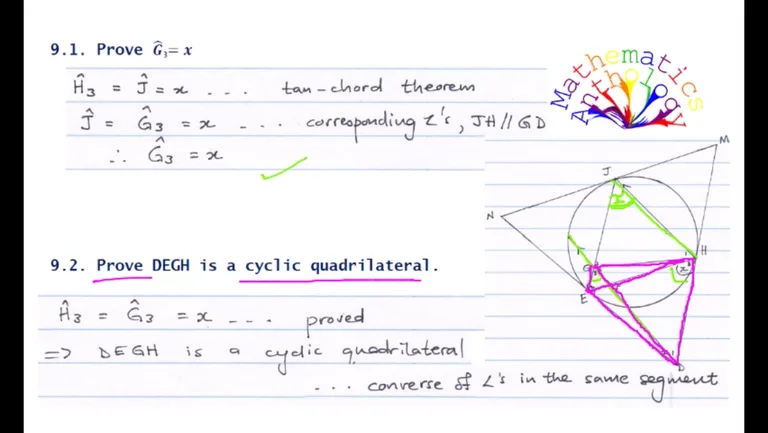 9.1. Prove Ĝ₃= x
Ĥ₃ = Ĵ = x ... tan-chord theorem
Ĵ = Ĝ₃ = x ... corresponding ∠'s, JH // GD
∴ Ĝ₃ = x
Mathematics
Anthology
M
J
N
H
x
G
3
E
D
9.2. Prove DEGH is a cyclic quadrilateral.
Ĥ₃ = Ĝ₃ = x ... proved
=> DEGH is a cyclic quadrilateral
... converse of ∠'s in the same segment